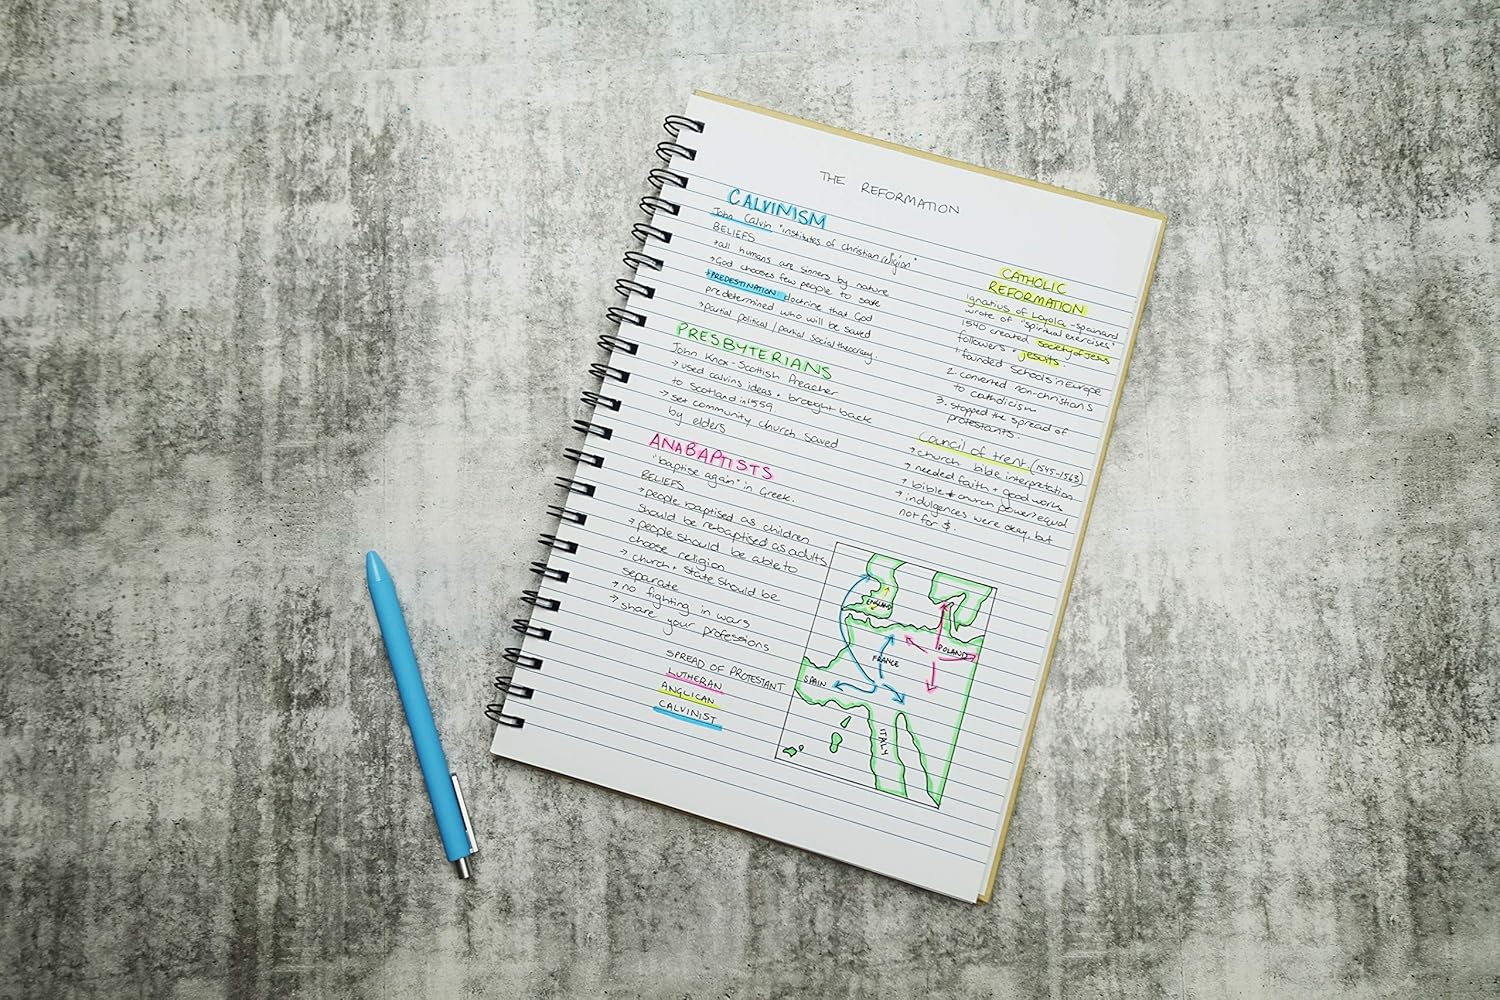 THE REFORMATION
CALVINISM
John Calvin "institutes of christian religion"
BELIEFS
→all humans are sinners by nature
→God chooses few people to save
→PREDESTINATION doctrine that God
predetermined who will be saved
→partial political/partial social theocracy
PRESBYTERIANS
John Knox - Scottish Preacher
→ used calvins ideas + brought back
to Scotland in 1559.
→ set community church saved
by elders
ANABAPTISTS
"baptise again" in Greek.
BELIEFS
→people baptised as children
should be rebaptised as adults
→people should be able to
choose religion
→ church + state should be
separate
→ no fighting in wars
→ share your professions
SPREAD OF PROTESTANT
LUTHERAN
ANGLICAN
CALVINIST
CATHOLIC
REFORMATION
Ignatius of Loyola - spainard
wrote of "spiritual exercises"
1540 created society of Jesus
followers = jesuits.
1. founded schools in Europe
2. converted non-christians
to catholicism
3. stopped the spread of
protestants.
Council of trent (1545-1563)
→church bible interpretation
→needed faith + good works
→bible + church power equal
→indulgences were okay, but
not for $.
ENGLAND
POLAND
FRANCE
SPAIN
ITALY